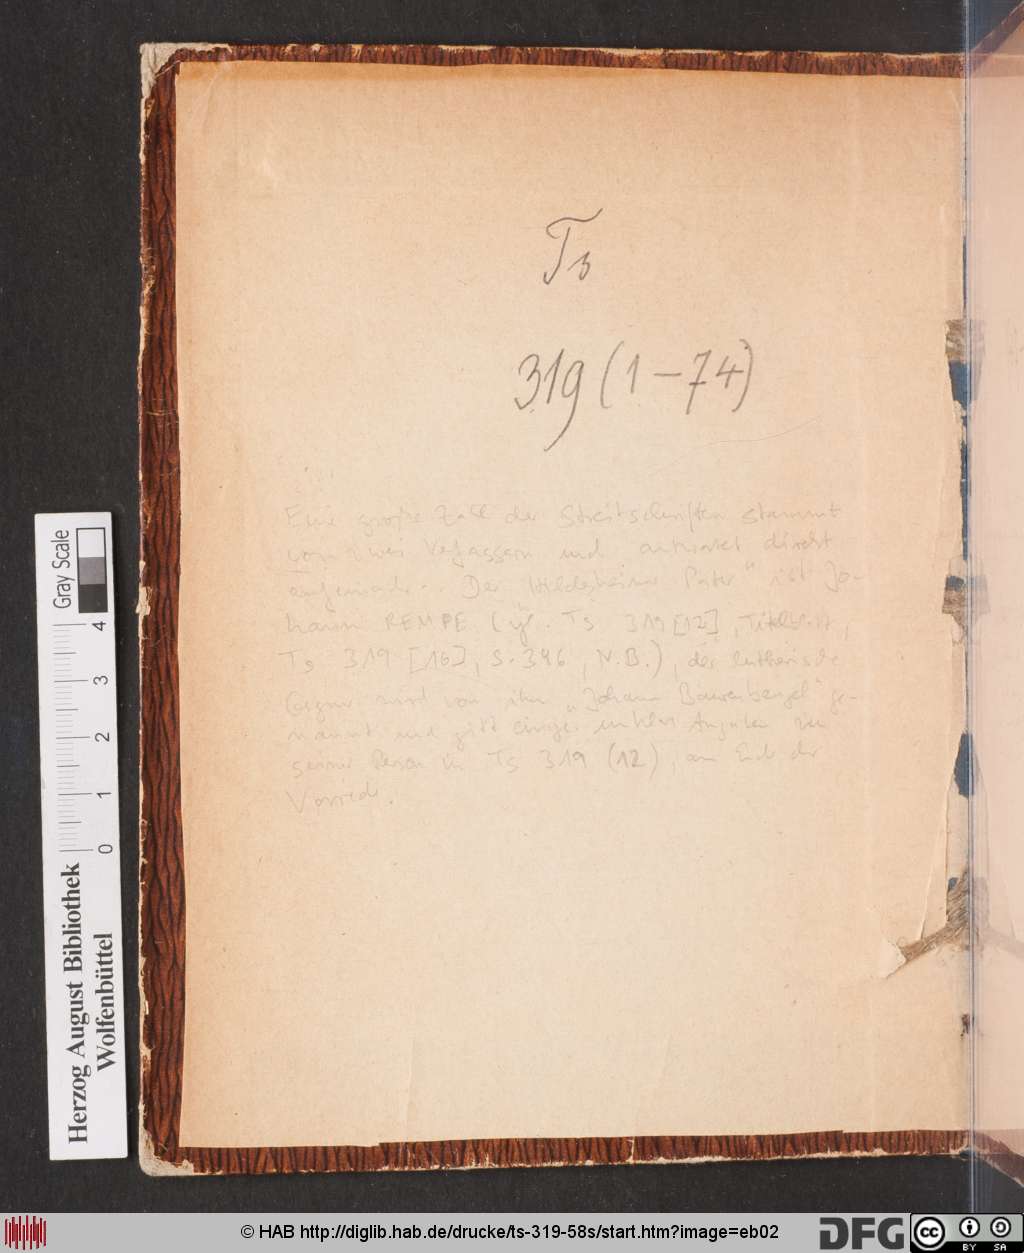 Ts
319 (1-74)
Eine große Zahl der Streitschriften stammt
von zwei Verfassern und antwortet direkt
aufeinander. Der "Hildesheimer Pater" ist Jo-
hann REMPE (vgl. Ts 319 [12], Titelbl.,
Ts 319 [16], S. 346, N.B.), der lutherische
Gegner wird von ihm "Johann Baurenbengel" ge-
nannt und gibt einige Angaben zu
seiner Person in Ts 319 (12), am Ende der
Vorrede.
Gray Scale
4
3
2
1
0
Herzog August Bibliothek
Wolfenbüttel
© HAB http://diglib.hab.de/drucke/ts-319-58s/start.htm?image=eb02
DFG
cc
BY SA